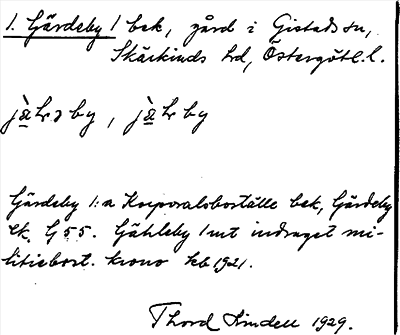 1. Gärdeby 1 bek, gård i Gistads sn,
Skärkinds hd, Östergötl. l.
jä̀hrəby, jä̀hrby
Gärdeby 1:a Korporalsboställe bek, Gärdeby
ek. G 55. Gähleby 1 mt indraget mi-
litiebost. krono kb 1921.
Thord Lindell 1929.